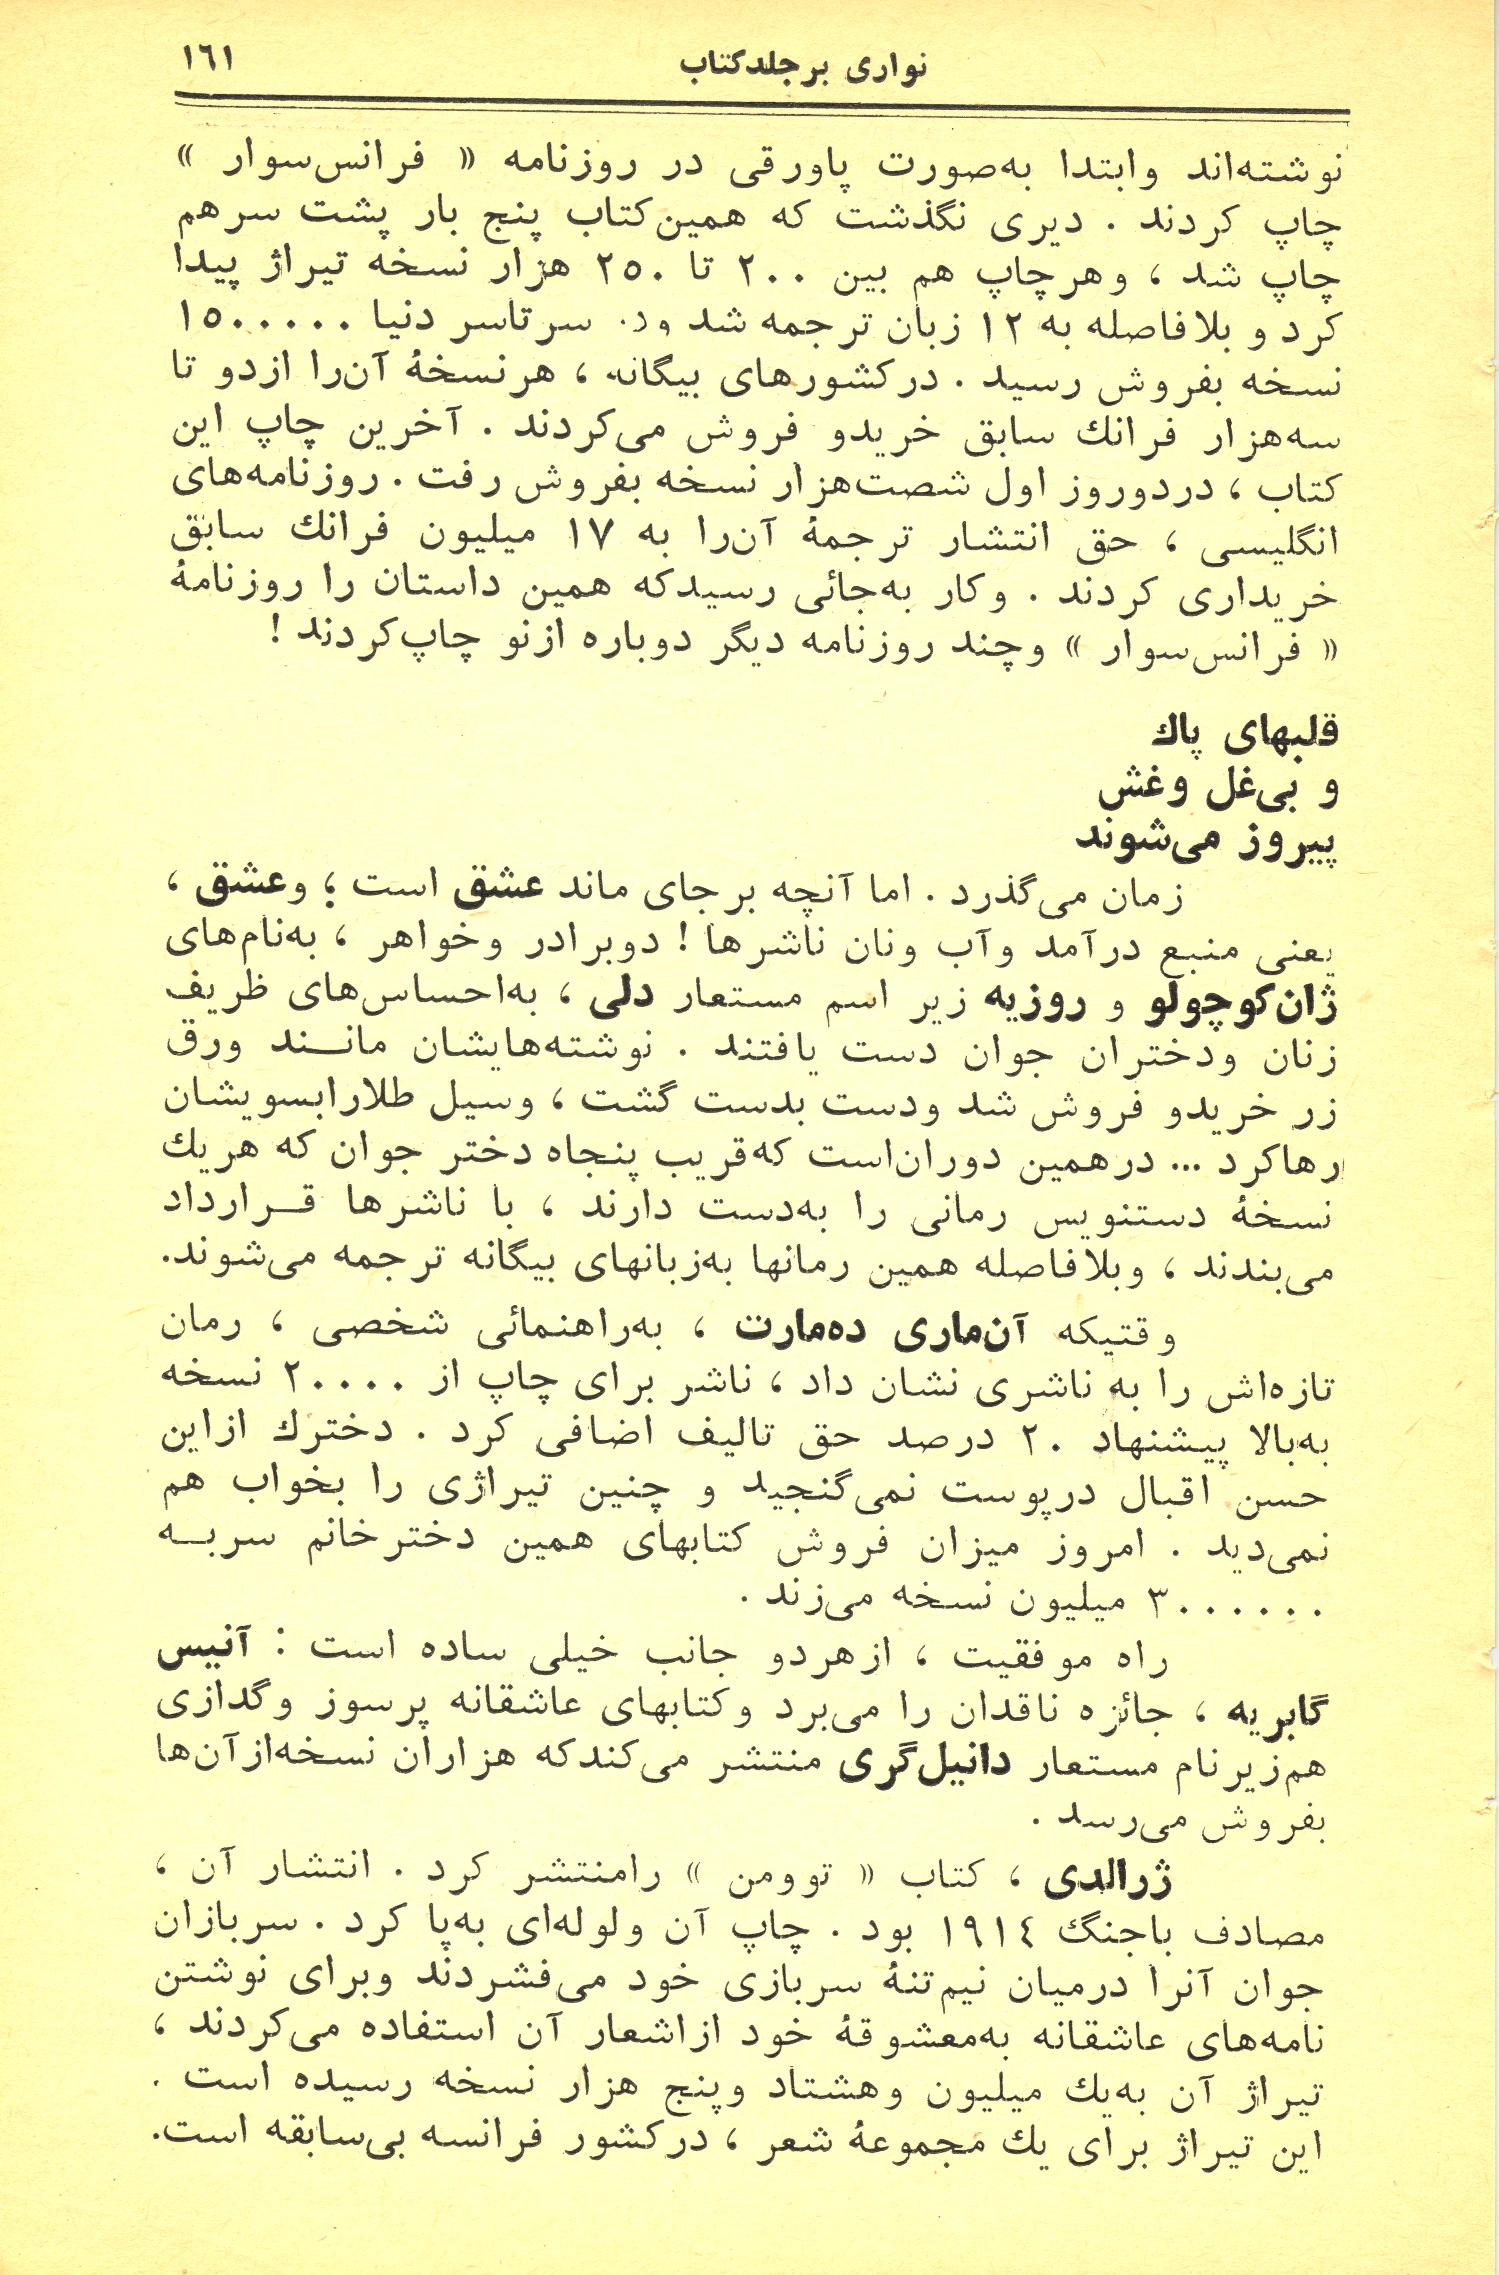 نواری بر جلد کتاب ۱۶۱
نوشته‌اند وابتدا به‌صورت پاورقی در روزنامه « فرانس‌سوار »
چاپ کردند . دیری نگذشت که همین‌کتاب پنج بار پشت سرهم
چاپ شد ، وهرچاپ هم بین ۲۰۰ تا ۲۵۰ هزار نسخه تیراژ پیدا
کرد و بلافاصله به ۱۲ زبان ترجمه شد ودر سرتاسر دنیا ۱۵۰۰۰۰۰
نسخه بفروش رسید . درکشورهای بیگانه ، هرنسخهٔ آن‌را ازدو تا
سه‌هزار فرانك سابق خریدو فروش می‌کردند . آخرین چاپ این
کتاب ، دردوروز اول شصت‌هزار نسخه بفروش رفت . روزنامه‌های
انگلیسی ، حق انتشار ترجمهٔ آن‌را به ۱۷ میلیون فرانك سابق
خریداری کردند . وکار به‌جائی رسیدکه همین داستان را روزنامهٔ
« فرانس‌سوار » وچند روزنامه دیگر دوباره ازنو چاپ‌کردند !
قلبهای پاك
و بی‌غل وغش
پیروز می‌شوند
زمان می‌گذرد . اما آنچه برجای ماند عشق است ؛ وعشق ،
یعنی منبع درآمد وآب ونان ناشرها ! دوبرادر وخواهر ، به‌نام‌های
ژان‌کوچولو و روزیه زیر اسم مستعار دلی ، به‌احساس‌های ظریف
زنان ودختران جوان دست یافتند . نوشته‌هایشان مانـند ورق
زر خریدو فروش شد ودست بدست گشت ، وسیل طلارابسویشان
رهاکرد ... درهمین دوران‌است که‌قریب پنجاه دختر جوان که هریك
نسخهٔ دستنویس رمانی را به‌دست دارند ، با ناشرها قـرارداد
می‌بندند ، وبلافاصله همین رمانها به‌زبانهای بیگانه ترجمه می‌شوند.
وقتیکه آن‌ماری ده‌مارت ، به‌راهنمائی شخصی ، رمان
تازه‌اش را به ناشری نشان داد ، ناشر برای چاپ از ۲۰۰۰۰ نسخه
به‌بالا پیشنهاد ۲۰ درصد حق تالیف اضافی کرد . دخترك ازاین
حسن اقبال درپوست نمی‌گنجید و چنین تیراژی را بخواب هم
نمی‌دید . امروز میزان فروش کتابهای همین دخترخانم سربـه
۳۰۰۰۰۰۰ میلیون نسخه می‌زند .
راه موفقیت ، ازهردو جانب خیلی ساده است : آنیس
گابریه ، جائزه ناقدان را می‌برد وکتابهای عاشقانه پرسوز وگدازی
هم‌زیرنام مستعار دانیل‌گری منتشر می‌کندکه هزاران نسخه‌ازآن‌ها
بفروش می‌رسد .
ژرالدی ، کتاب « توومن » رامنتشر کرد . انتشار آن ،
مصادف باجنگ ۱۹۱۴ بود . چاپ آن ولوله‌ای به‌پا کرد . سربازان
جوان آنرا درمیان نیم‌تنهٔ سربازی خود می‌فشردند وبرای نوشتن
نامه‌های عاشقانه به‌معشوقهٔ خود ازاشعار آن استفاده می‌کردند ،
تیراژ آن به‌یك میلیون وهشتاد وپنج هزار نسخه رسیده است .
این تیراژ برای یك مجموعهٔ شعر ، درکشور فرانسه بی‌سابقه است.